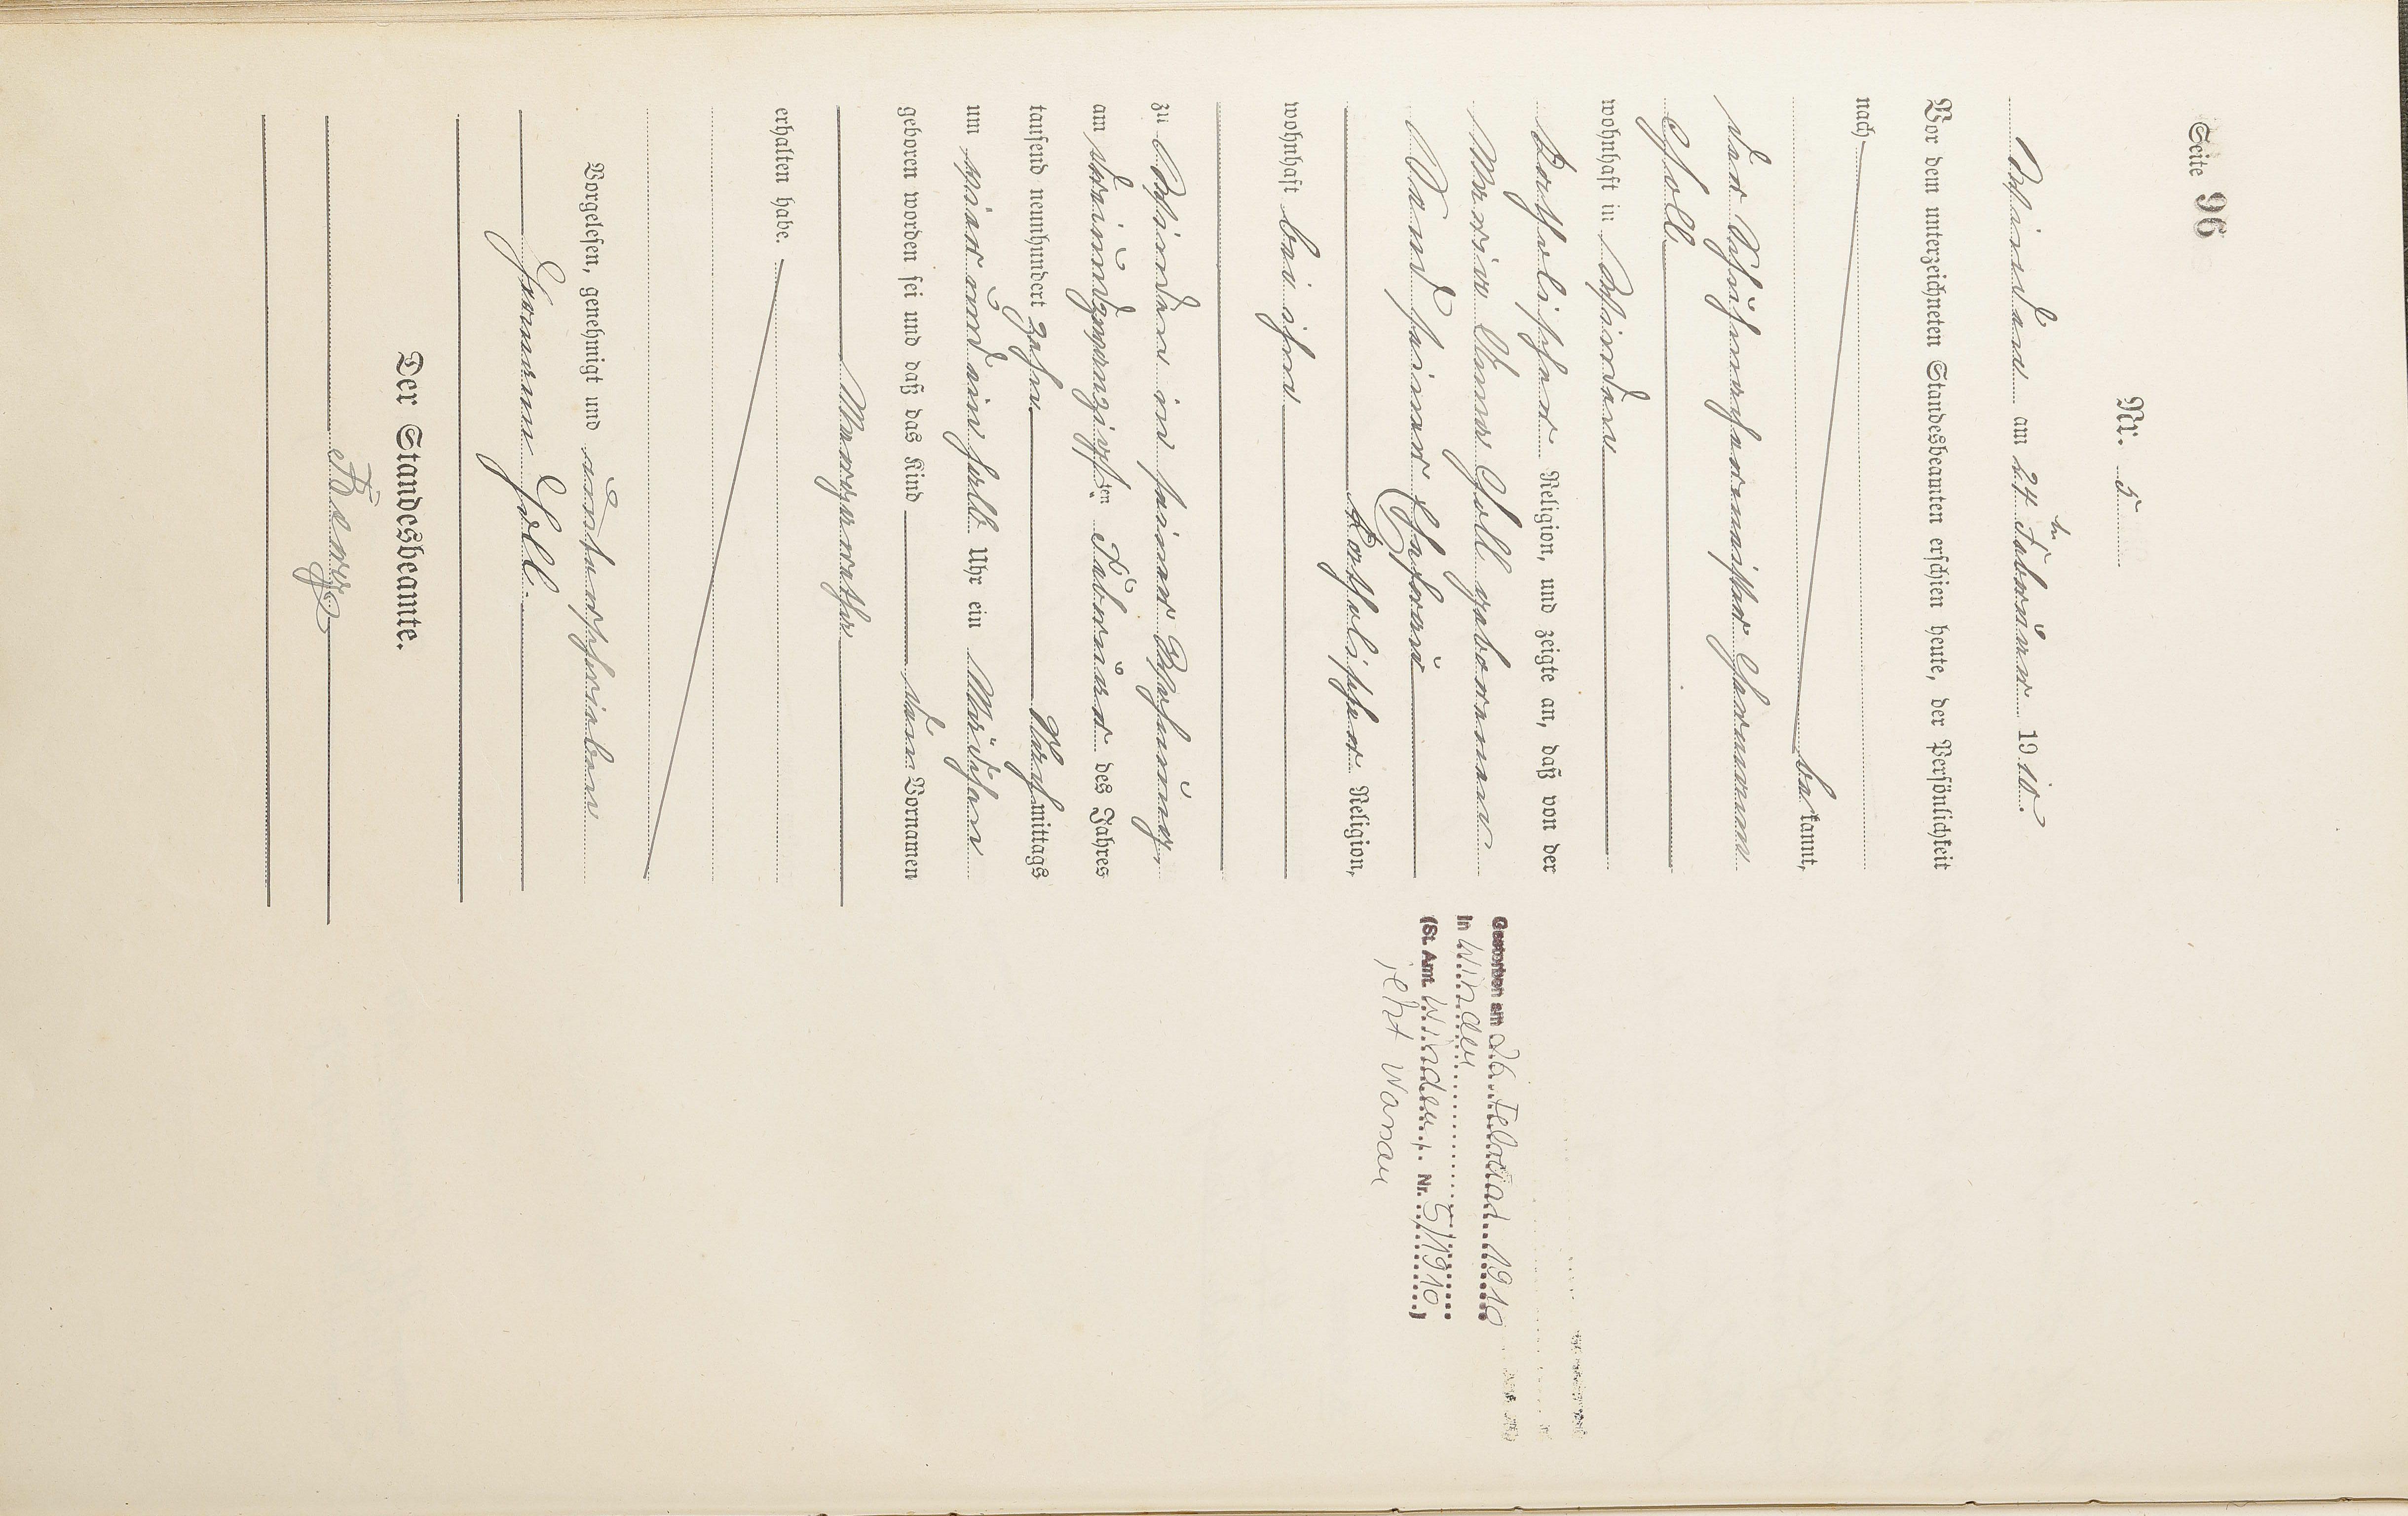 Seite 96
Nr. 5
Winden am 24ten Februar 1910.
Vor dem unterzeichneten Standesbeamten erschien heute, der Persönlichkeit
nach
bekannt,
der Schuhmachermeister Hermann
Goll
wohnhaft in Winden
katholischer Religion, und zeigte an, daß von der
Maria Anna Goll geborenen
seiner Ehefrau
katholischer Religion,
wohnhaft bei ihm
zu Winden in seiner Behausung,
am dreiundzwanzigsten Februar des Jahres
tausend neunhundert zehn Nachmittags
um vier und ein halb Uhr ein Mädchen
geboren worden sei und daß das Kind den Vornamen
Margaretha
erhalten habe.
Vorgelesen, genehmigt und unterschrieben
Hermann Goll.
Der Standesbeamte.
Gestorben am 26. Februar 1910
in Winden
(St. Amt Winden, Nr. 5/1910)